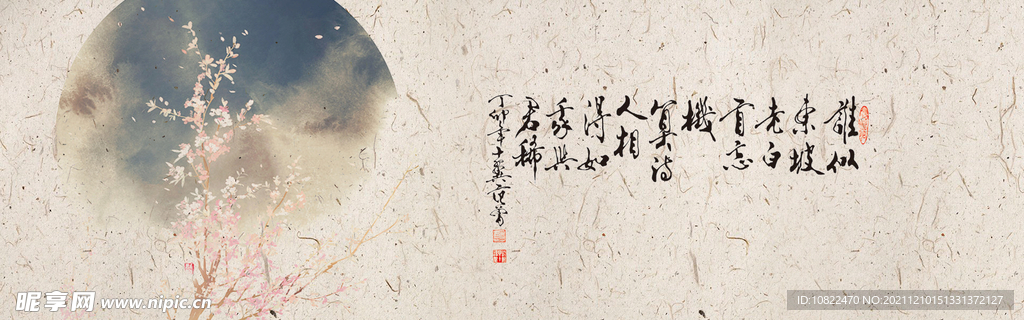 誰似
東坡
老白
首忘
機
算詩
人相
得如
我與
君稀
丁卯年十翼范曾
昵享网 www.nipic.cn
ID:10822470 NO:20211210151331372127